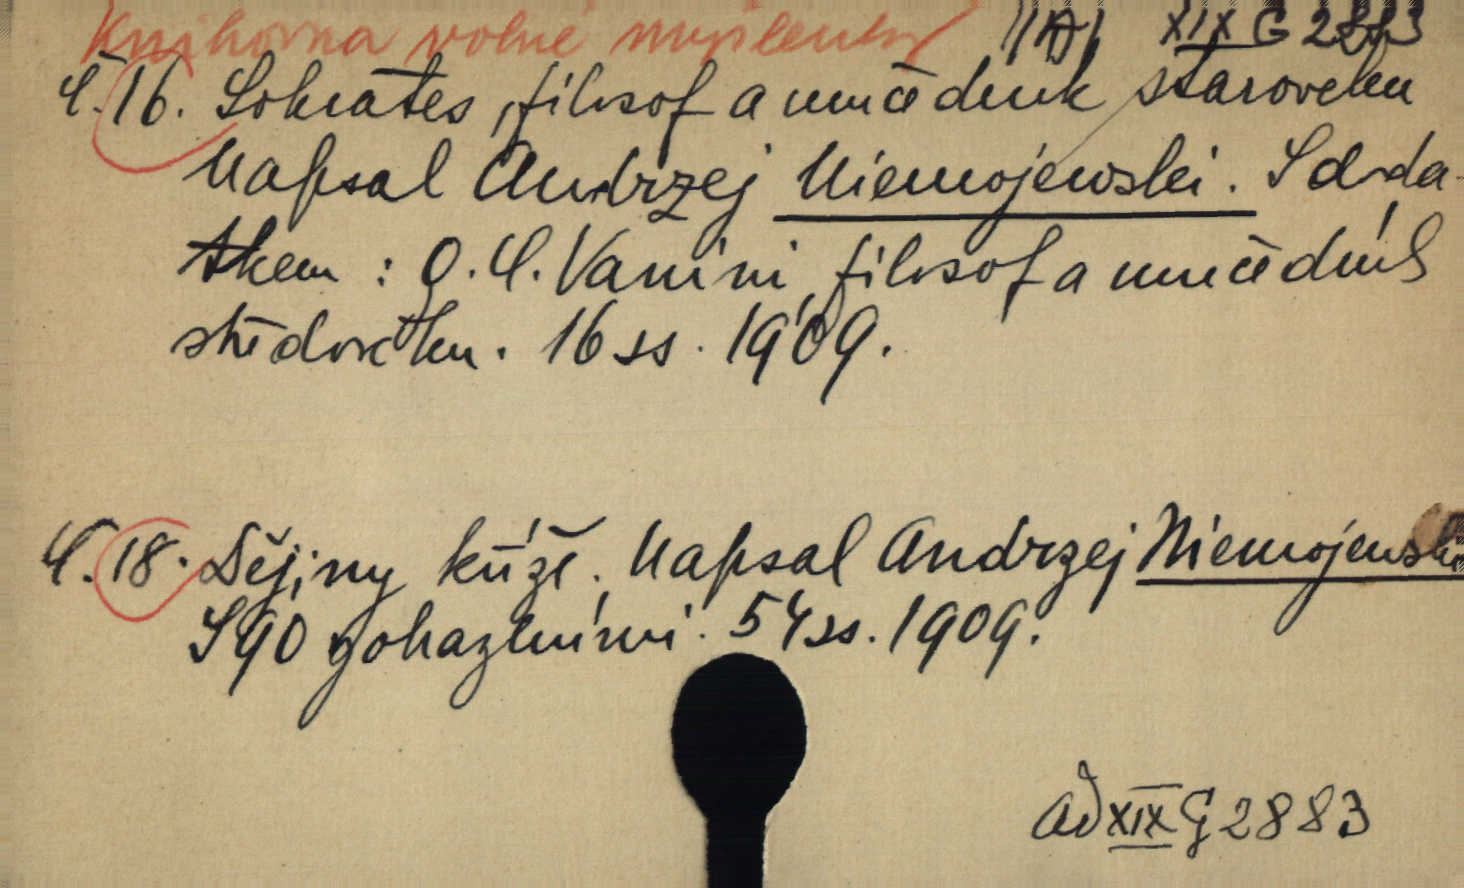 Knihovna volné myšlenky IIA, XIX G 2883
Č. 16. Sokrates, filosof a mučedník starověku
Napsal Andrzej Niemojewski. S doda-
tkem: O. L. Vanini, filosof a mučedník
středověku. 16 ss. 1909.
Č. 18. Dějiny kříže. Napsal Andrzej Niemojewski
S 90 vyobrazeními. 54 ss. 1909.
ad XIX G 2883